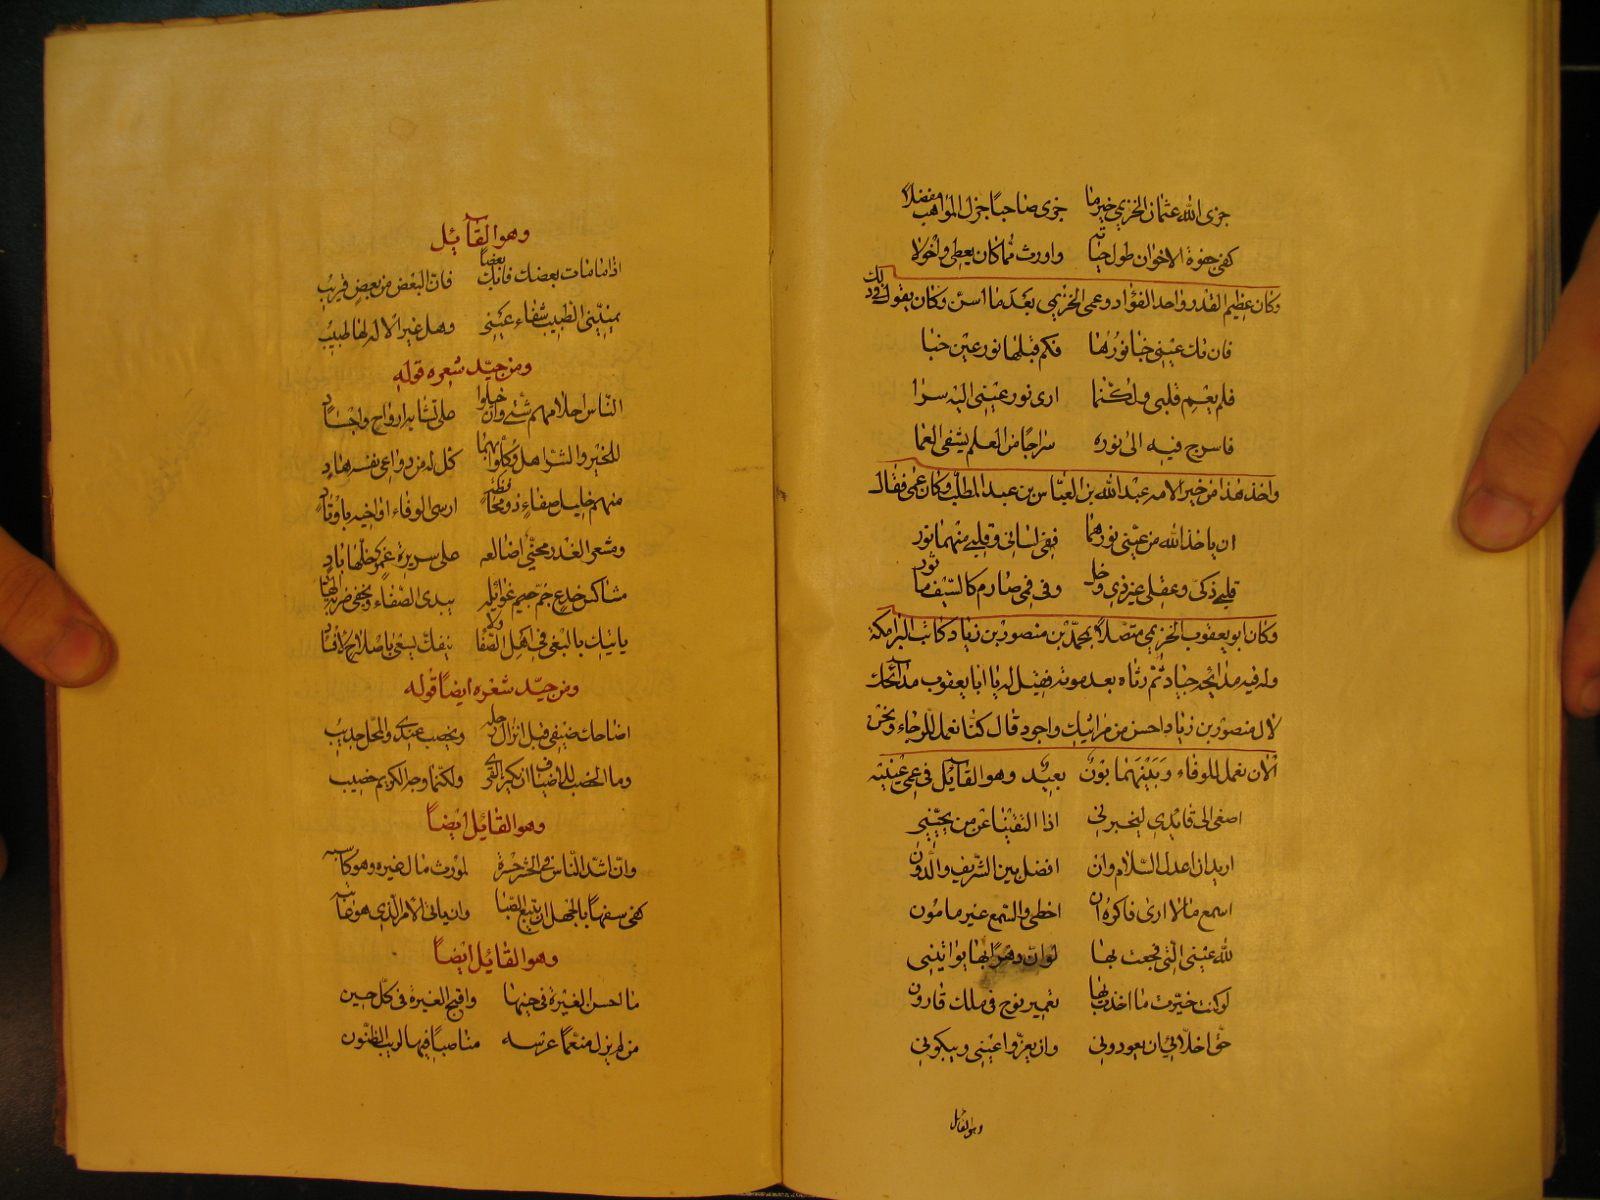 جزى الله عثمان الخزيمي خير ما جزى صاحبًا جزل المواهب مفضلاً
كفى جفوة الاخوان طول حياته واورث مما كان يعطى واخولا
وكان عظيم القدر واحد الفؤاد وعمى الخزيمي بعد ما اسن وكان يقول فى ذلك
فان تك عينى خبا نورها فكم قبلها نور عين خبا
فلم يعم قلبى ولكنما ارى نور عينى اليه سرا
فاسرج فيه الى نوره سراجًا من العلم يشفى العما
واخذ هذا من خبر الامه عبد الله بن العباس بن عبد المطلب وكان عمى فقال
ان ياخذ الله من عينى نورهما ففى لسانى وقلبى منهما نور
قلبى ذكى وعقلى غير ذى دخل وفى فمى صارم كالسيف ماثور
وكان ابو يعقوب الخزيمي متصلاً بمحمد بن منصور بن زياد كاتب البرامكة
وله فيه مدائح جياد ثم رثاه بعد موته فقيل له يا ابا يعقوب مدائحك
لال منصور بن زياد احسن من مراثيك واجود قال كنا نعمل للرجاء ونحن
الان نعمل للوفاء وبينهما بون بعيد وهو القائل فى عمى عينيه
اصغى الى قائدى ليخبرنى اذا التقينا عن من يحيينى
اريد ان اعدل السلام وان افضل بين الشريف والدون
اسمع ما لا ارى فاكره ان اخطى والسمع غير مامون
لله عينى التى فجعت بها لو ان دهرًا بها يواتينى
لو كنت خيرت ما اخذت بها تعمير نوح فى ملك قارون
حق اخلائى ان يعودونى وان يعزوا عينى ويبكونى
وهو القائل
وهو القائل
اذا ما مات بعضك فابك بعضًا فان البعض من بعض قريب
يمنينى الطبيب شفاء عينى وهل غير الاله لها طبيب
ومن جيد شعره قوله
الناس اخلاقهم شتى وان جبلوا على تشابه ارواح واجساد
للخير والشر اهل وكلوا بهما كل له من دواعى نفسه هاد
منهم خليل صفاء ذو محافظة ارسى الوفاء اواخيه باوتاد
ومشعر الغدر محنى اضالعه على سريرة غمر غلها باد
مشاكس خدع جم غوائله يبدى الصفاء ويخفى ضربة الهادى
ياتيك بالبغى فى اهل الصفا ولا ينفك يسعى باصلاح لافساد
ومن جيد شعره ايضًا قوله
اضاحك ضيفى قبل انزال رحله ويخصب عندى والمحل جديب
وما الخصب للاضياف ان يكثر القرى ولكنما وجه الكريم خصيب
وهو القائل ايضًا
وان اشد الناس فى الحشر حسرة لمورث مال غيره وهو كاسبه
كفى سفهًا بالجهل ان يتبع الصبا وان ياتى الامر الذى هو عائبه
وهو القائل ايضًا
ما احسن الغيرة فى حينها واقبح الغيرة فى كل حين
من لم يزل متهمًا عرسه مناصبًا فيها لريب الظنون